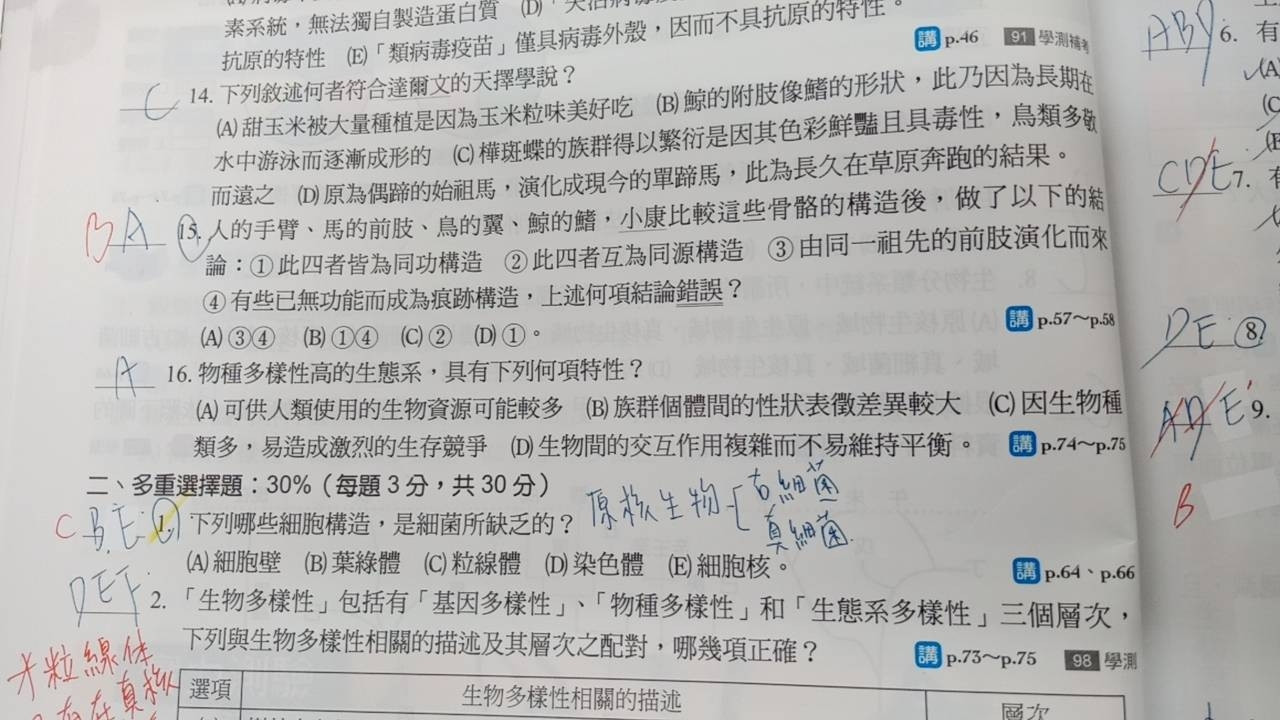 素系統，無法獨自製造蛋白質 (D)「
抗原的特性 (E)「類病毒疫苗」僅具病毒外殼，因而不具抗原的特性。
講 p.46 91 學測補考
C 14. 下列敘述何者符合達爾文的天擇學說？
(A)甜玉米被大量種植是因為玉米粒味美好吃 (B)鯨的附肢像鰭的形狀，此乃因為長期在
水中游泳而逐漸成形的 (C)樺斑蝶的族群得以繁衍是因其色彩鮮豔且具毒性，鳥類多敬
而遠之 (D)原為偶蹄的始祖馬，演化成現今的單蹄馬，此為長久在草原奔跑的結果。
B A 15. 人的手臂、馬的前肢、鳥的翼、鯨的鰭，小康比較這些骨骼的構造後，做了以下的結
論：①此四者皆為同功構造 ②此四者互為同源構造 ③由同一祖先的前肢演化而來
④有些已無功能而成為痕跡構造，上述何項結論錯誤？
(A)③④ (B)①④ (C)② (D)①。
講 p.57～p.58
A 16. 物種多樣性高的生態系，具有下列何項特性？
(A)可供人類使用的生物資源可能較多 (B)族群個體間的性狀表徵差異較大 (C)因生物種
類多，易造成激烈的生存競爭 (D)生物間的交互作用複雜而不易維持平衡。 講 p.74～p.75
二、多重選擇題：30%（每題 3 分，共 30 分）
C B E 1. 下列哪些細胞構造，是細菌所缺乏的？
原核生物 古細菌
真細菌
(A)細胞壁 (B)葉綠體 (C)粒線體 (D)染色體 (E)細胞核。 講 p.64、p.66
2. 「生物多樣性」包括有「基因多樣性」、「物種多樣性」和「生態系多樣性」三個層次，
下列與生物多樣性相關的描述及其層次之配對，哪幾項正確？ 講 p.73～p.75 98 學測
粒線体
存在真核
選項 生物多樣性相關的描述 層次
ABD 6. 有
(A)
(C)
CDE 7.
DE 8.
AD E 9.
B